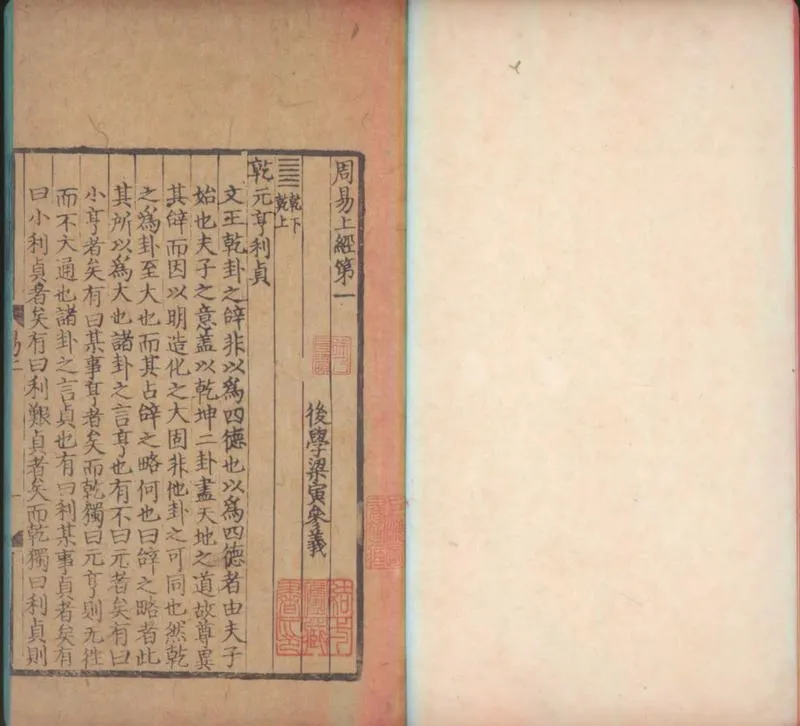 周易上經第一
後學梁寅參義
乾下
乾上
乾元亨利貞
文王乾卦之辝非以爲四德也以爲四德者由夫子
始也夫子之意盖以乾坤二卦盡天地之道故尊異
其辝而因以明造化之大固非他卦之可同也然乾
之爲卦至大也而其占辝之略何也曰辝之略者此
其所以爲大也諸卦之言亨也有不曰元者矣有曰
小亨者矣有曰某事亨者矣而乾獨曰元亨則无徃
而不大通也諸卦之言貞也有曰利某事貞者矣有
曰小利貞者矣有曰利艱貞者矣而乾獨曰利貞則
易二
一